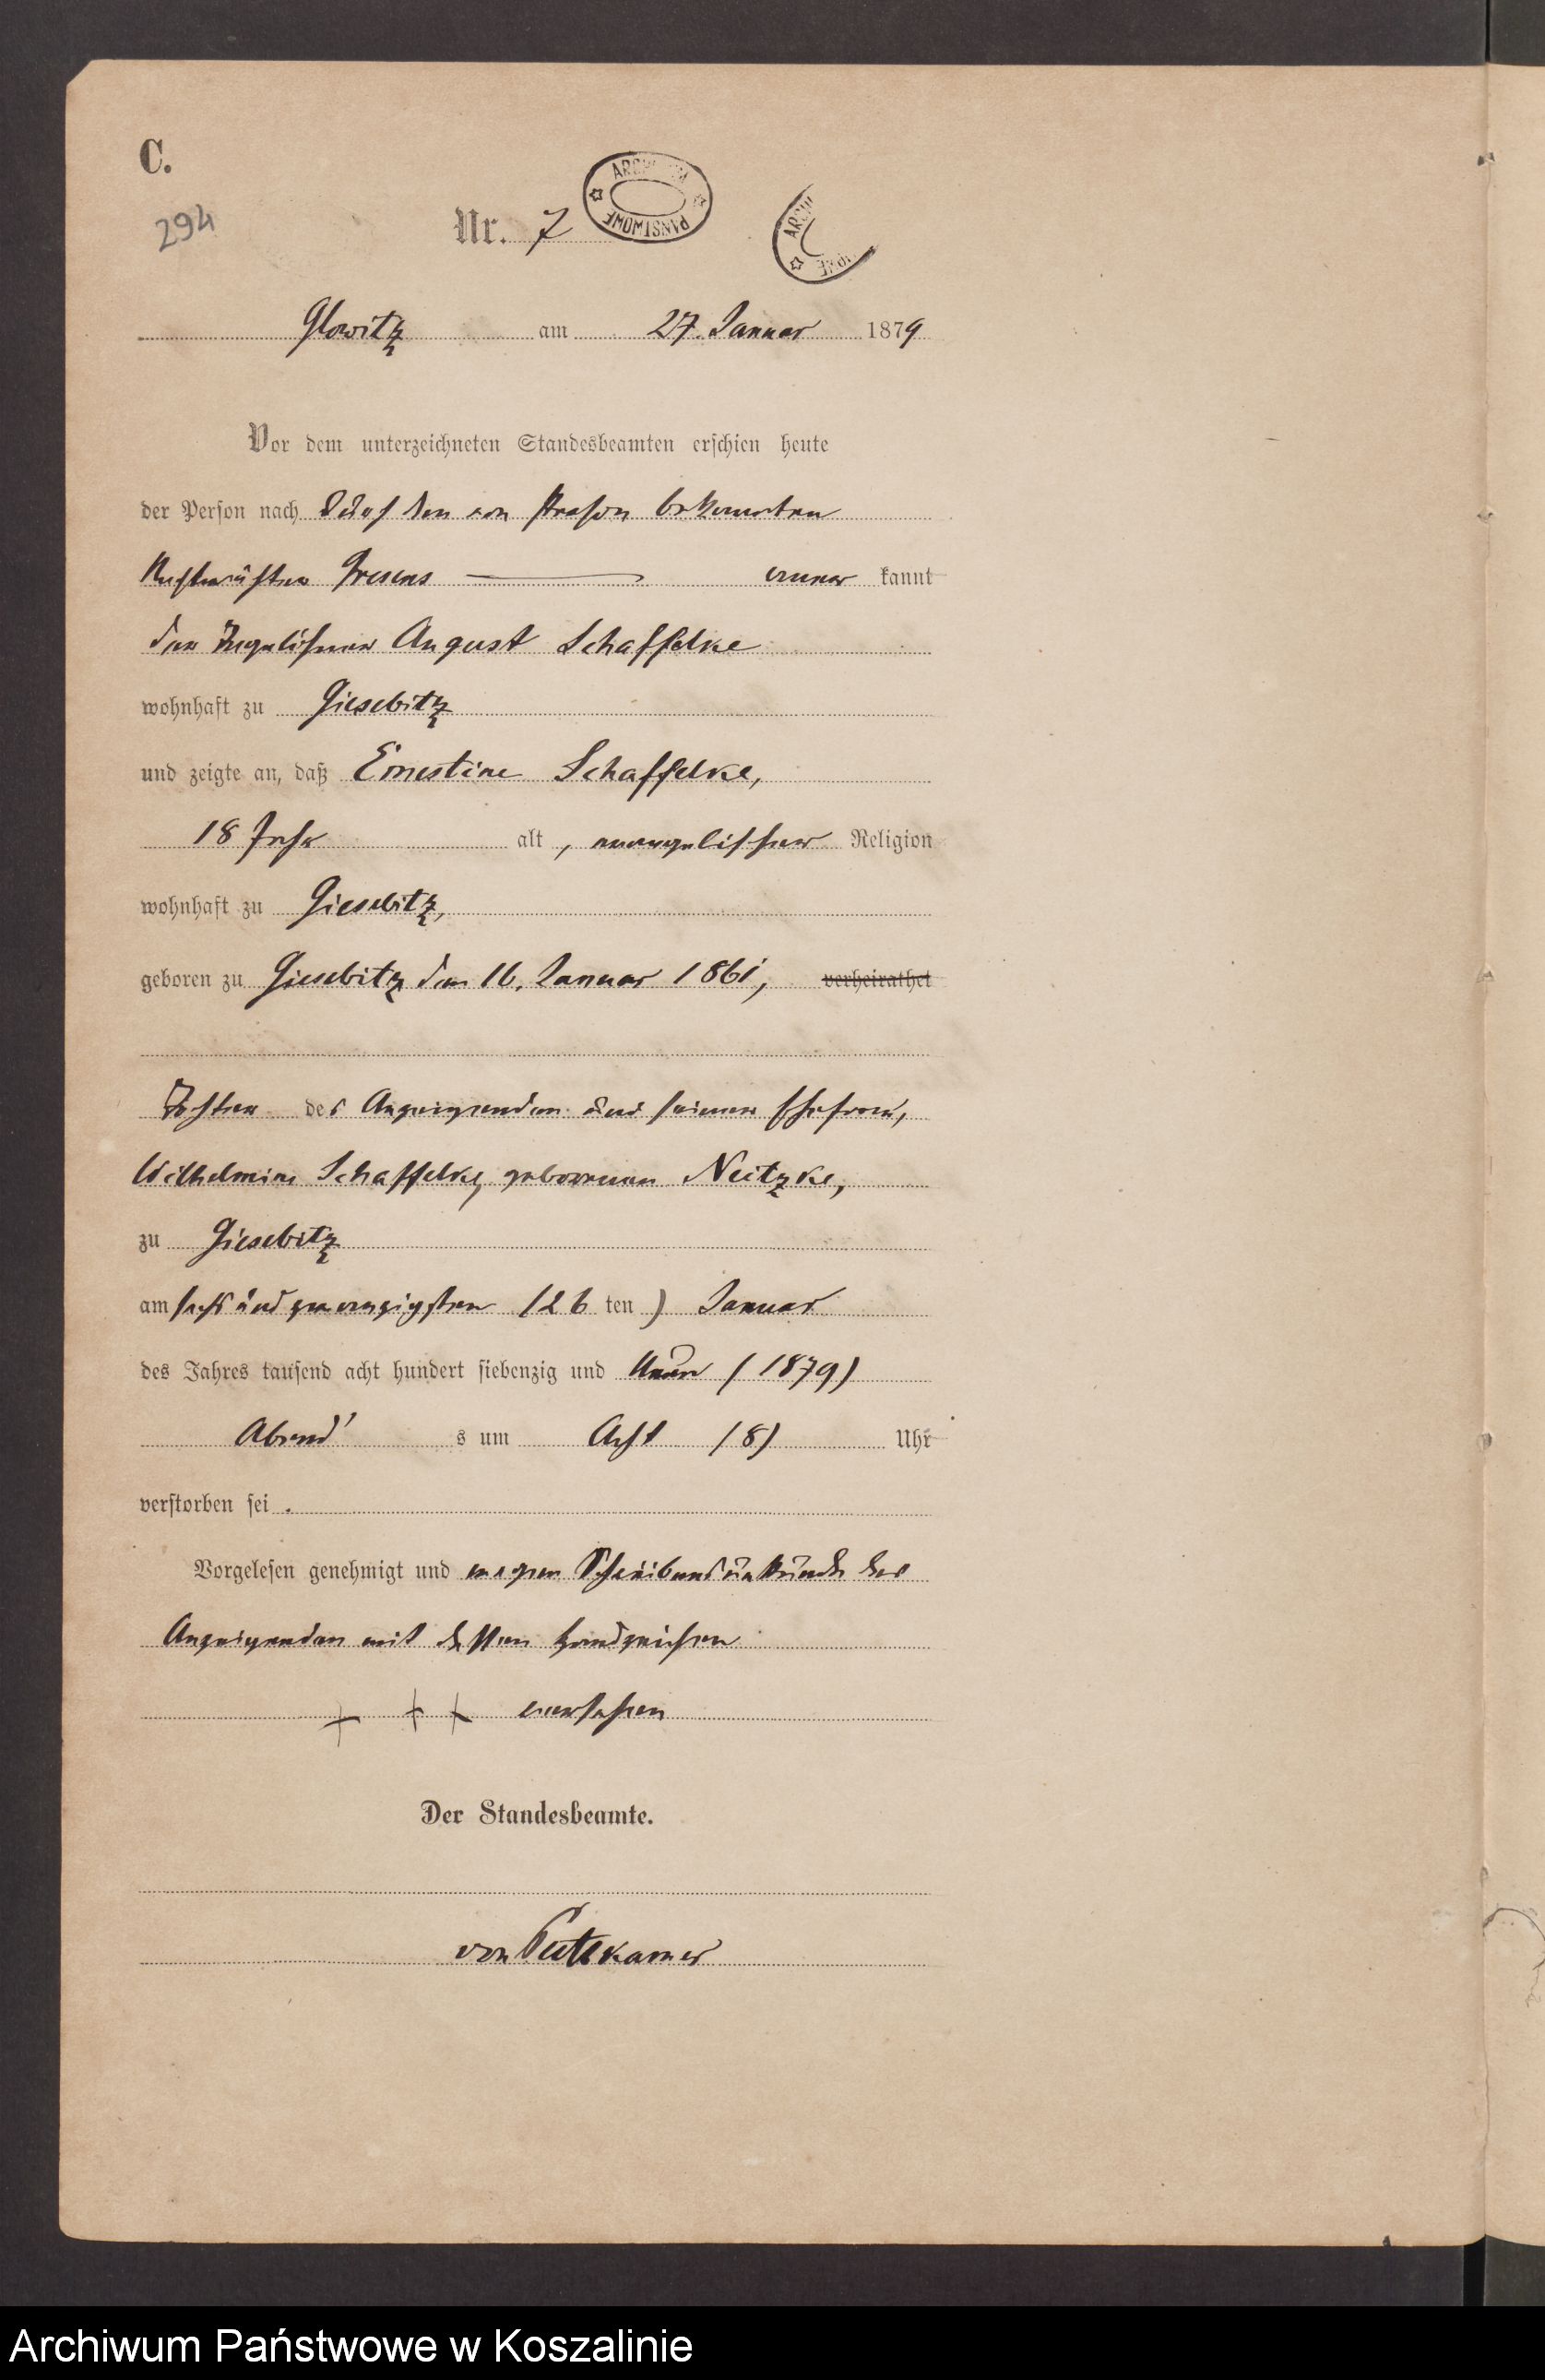 C.
294
Nr. 7
ARCHIWUM PAŃSTWOWE
ARCHI
Glowitz am 27. Januar 1879
Vor dem unterzeichneten Standesbeamten erschien heute
der Person nach durch den von Person bekannten
kannt
der August Schaffelke
wohnhaft zu Giesebitz
und zeigte an, daß Ernestine Schaffelke,
18 Jahr alt, evangelischer Religion
wohnhaft zu Giesebitz,
geboren zu Giesebitz den 16. Januar 1861, verheirathet
Tochter des Anzeigenden und seiner Ehefrau,
Wilhelmine Schaffelke, geborenen Neitzke,
zu Giesebitz
am sechs und zwanzigsten (26 ten) Januar
des Jahres tausend acht hundert siebenzig und Neun (1879)
Abend s um Acht (8) Uhr
verstorben sei.
Vorgelesen genehmigt und wegen Schreibensunkunde des
Anzeigenden mit dessen Handzeichen
+ + + versehen
Der Standesbeamte.
von Puttkamer
Archiwum Państwowe w Koszalinie